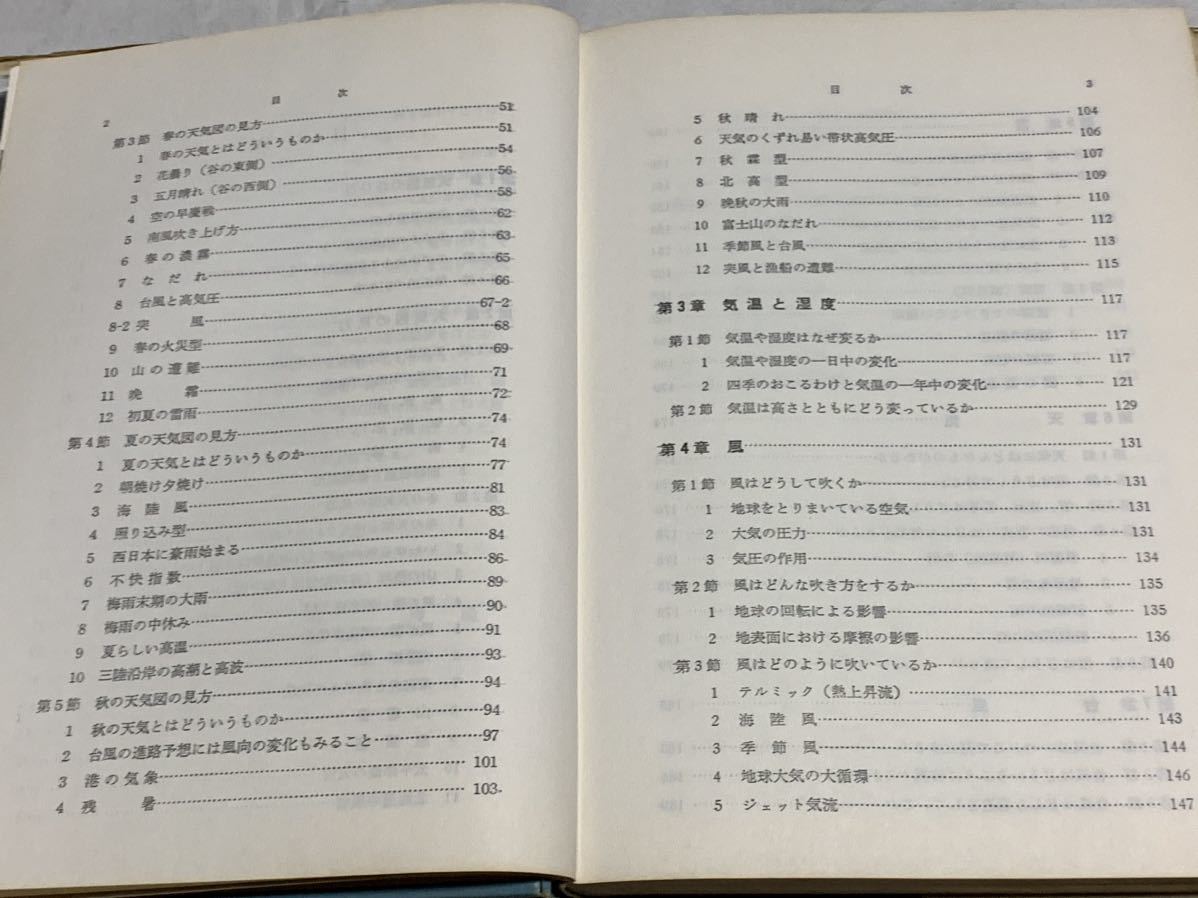 2 目次
第3節 春の天気図の見方 51
1 春の天気とはどういうものか 51
2 花曇り（谷の東側） 54
3 五月晴れ（谷の西側） 56
4 空の早慶戦 58
5 南風吹き上げ方 62
6 春の濃霧 63
7 なだれ 65
8 台風と高気圧 66
8-2 突風 67-2
9 春の火災型 68
10 山の遭難 69
11 晩霜 71
12 初夏の雷雨 72
第4節 夏の天気図の見方 74
1 夏の天気とはどういうものか 74
2 朝焼け夕焼け 77
3 海陸風 81
4 照り込み型 83
5 西日本に豪雨始まる 84
6 不快指数 86
7 梅雨末期の大雨 89
8 梅雨の中休み 90
9 夏らしい高温 91
10 三陸沿岸の高潮と高波 93
第5節 秋の天気図の見方 94
1 秋の天気とはどういうものか 94
2 台風の進路予想には風向の変化もみること 97
3 港の気象 101
4 残暑 103
目次 3
5 秋晴れ 104
6 天気のくずれ易い帯状高気圧 106
7 秋霖型 107
8 北高型 109
9 晩秋の大雨 110
10 富士山のなだれ 112
11 季節風と台風 113
12 突風と漁船の遭難 115
第3章 気温と湿度 117
第1節 気温や湿度はなぜ変るか 117
1 気温や湿度の一日中の変化 117
2 四季のおこるわけと気温の一年中の変化 121
第2節 気温は高さとともにどう変っているか 129
第4章 風 131
第1節 風はどうして吹くか 131
1 地球をとりまいている空気 131
2 大気の圧力 131
3 気圧の作用 134
第2節 風はどんな吹き方をするか 135
1 地球の回転による影響 135
2 地表面における摩擦の影響 136
第3節 風はどのように吹いているか 140
1 テルミック（熱上昇流） 141
2 海陸風 143
3 季節風 144
4 地球大気の大循環 146
5 ジェット気流 147